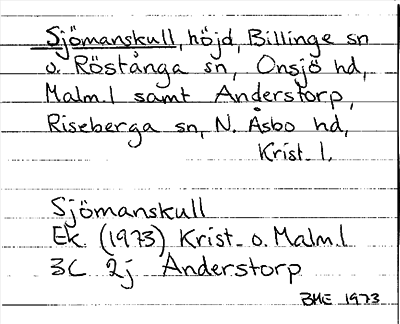 Sjömanskull, höjd, Billinge sn
o. Röstånga sn, Onsjö hd,
Malm.l samt Anderstorp,
Riseberga sn, N. Åsbo hd,
Krist. l.
Sjömanskull
Ek. (1973) Krist. o. Malm.l
3C 2j Anderstorp
BHE 1973